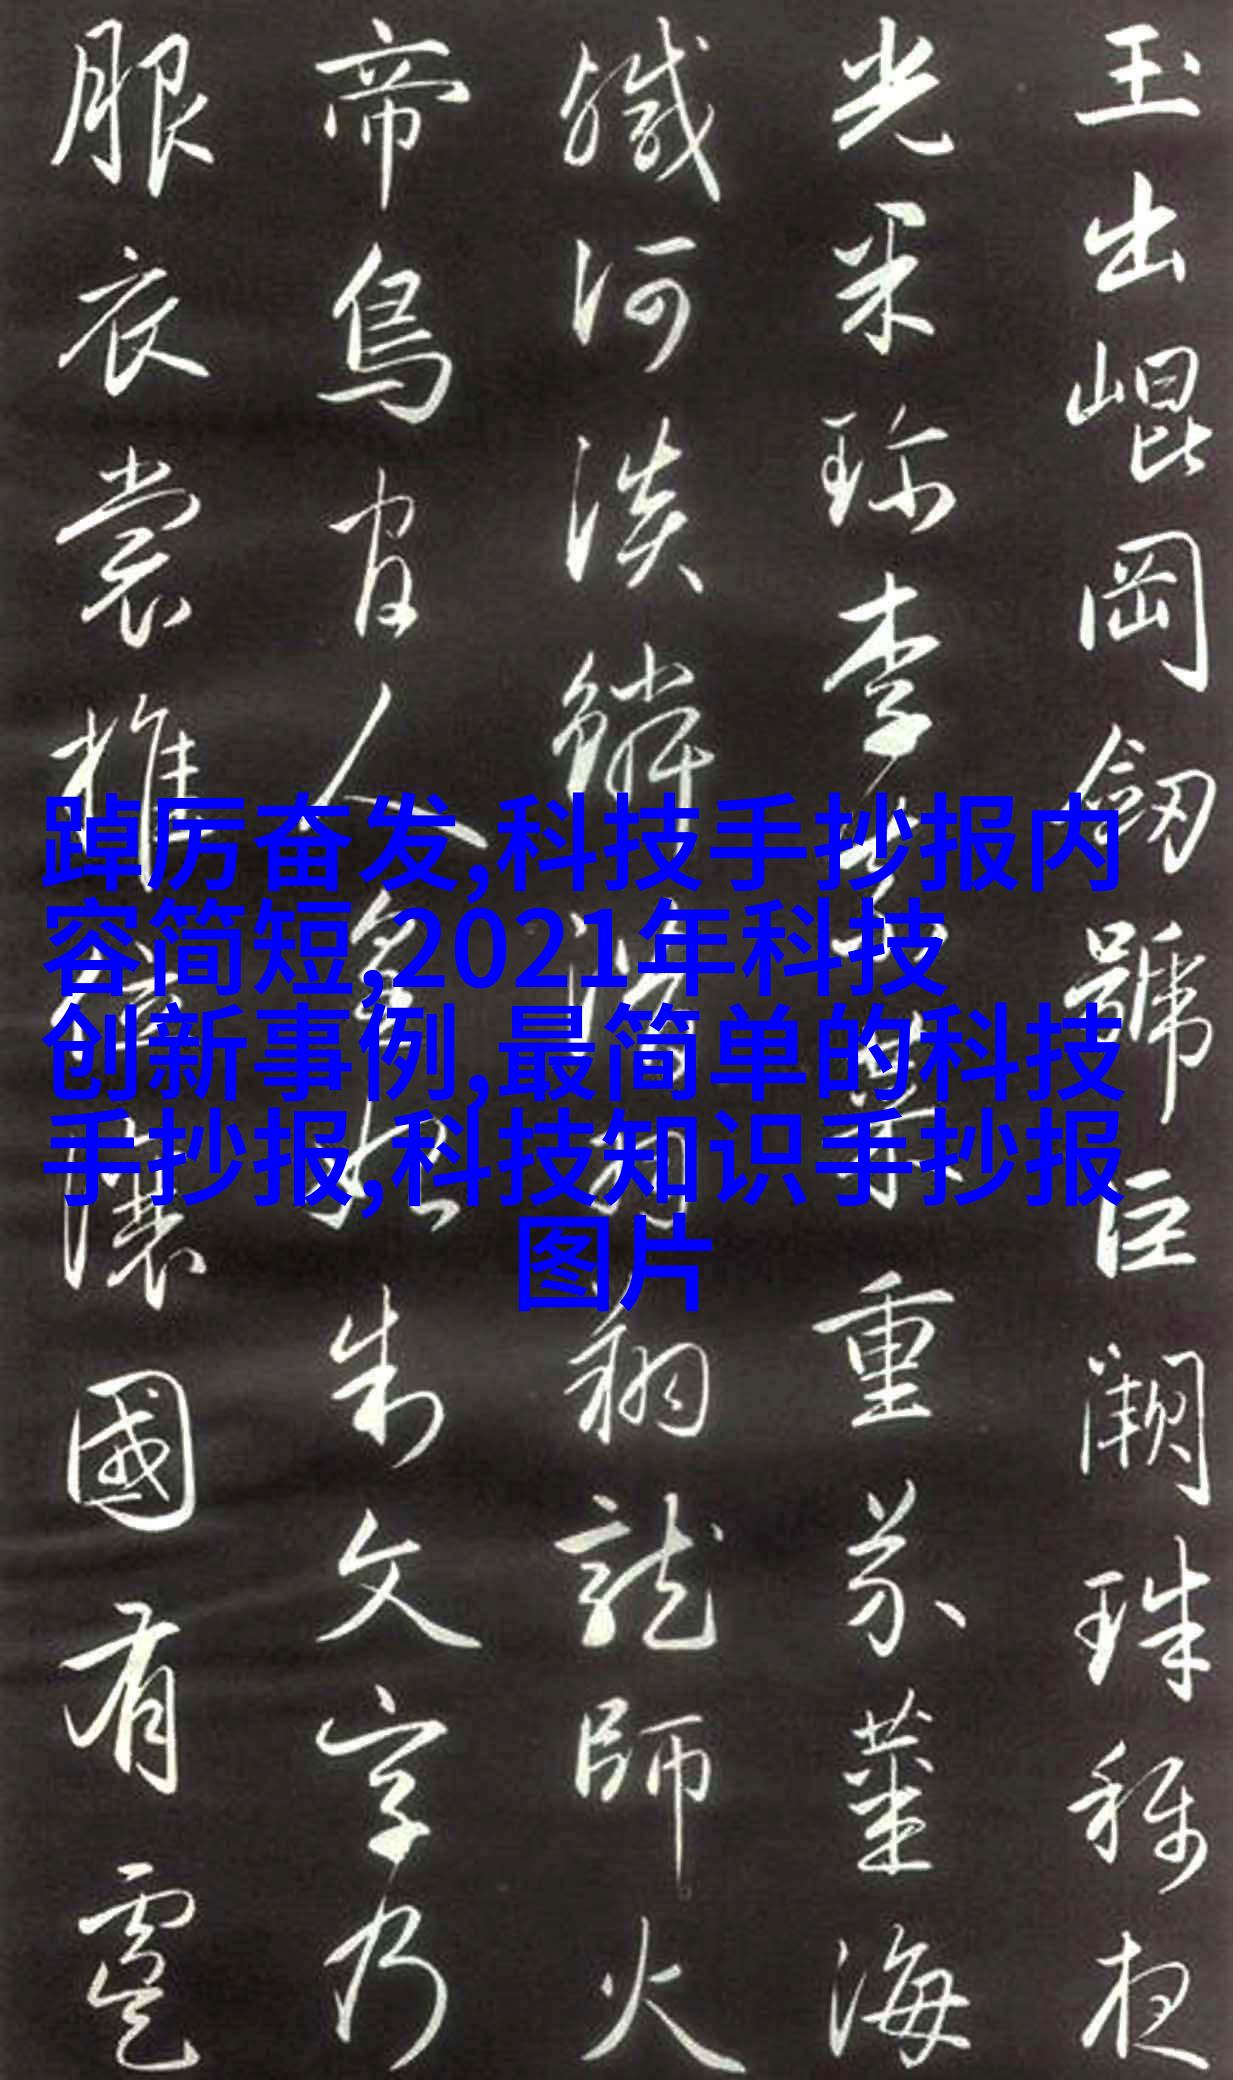 玉出崐岡劒號巨闕珠稱夜
光果珎李柰菜重芥薑海
鹹河淡鱗潛羽翔龍師火
帝鳥官人皇始制文字乃
服衣裳推位讓國有虞
踔厉奋发,科技手抄报内
容简短,2021年科技
创新事例,最简单的科技
手抄报,科技知识手抄报
图片